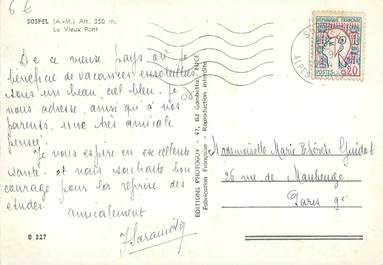 6 €
SOSPEL (A.-M.) Alt. 350 m.
Le Vieux Pont
De ce vieux pays où je
bénéficie de vacances ensoleillées
sous un beau ciel bleu. Je
vous adresse, ainsi qu'à vos
parents, une très amicale
pensée.
Je vous espère en excellente
santé. et vous souhaite bon
courage pour la reprise des
études
amicalement
B 327
EDITIONS PHOTOGUY - 47, Bd Gambetta, NICE
Fabrication Française - Reproduction interdite
REPUBLIQUE FRANÇAISE
POSTES 0,20
ALPES
Mademoiselle Marie Thérèse Guidot
26 rue de Maubeuge
Paris 9e